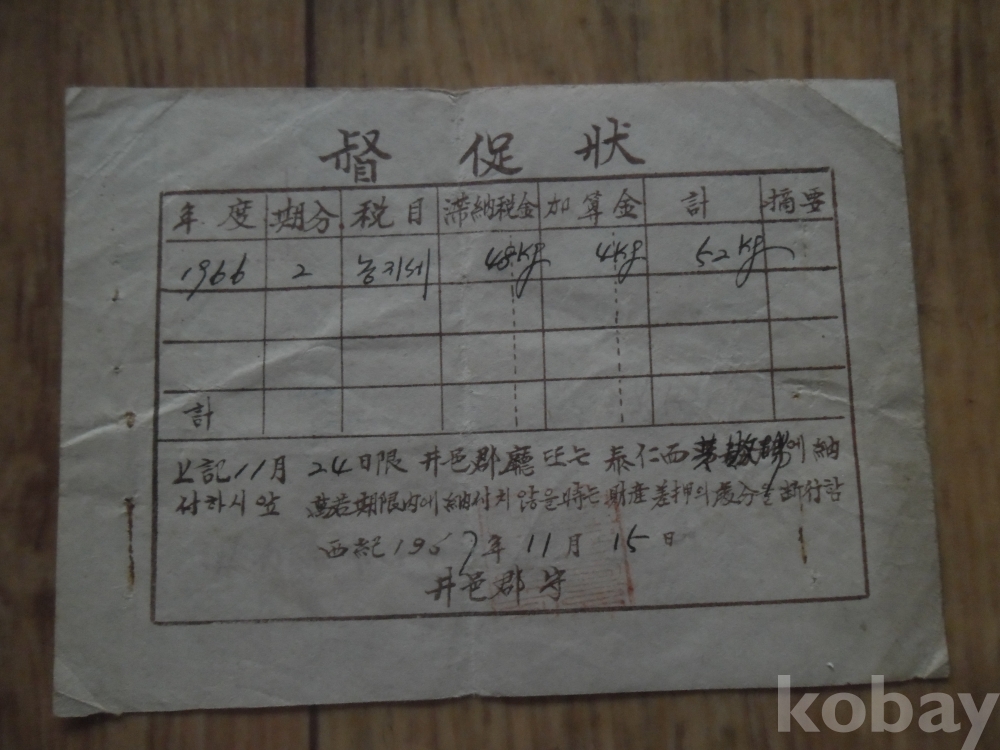 督促狀
年度 期分 税目 滞納税金 加算金 計 摘要
1966 2 농지세 48kg 4kg 52kg
計
上記 11月 24日限 井邑郡廳 또는 泰仁西 에 納
付하시앞 萬若期限內에 納付치 않을時는 財産差押의 處分을 断行함
西紀 1967年 11月 15日
井邑郡守
kobay